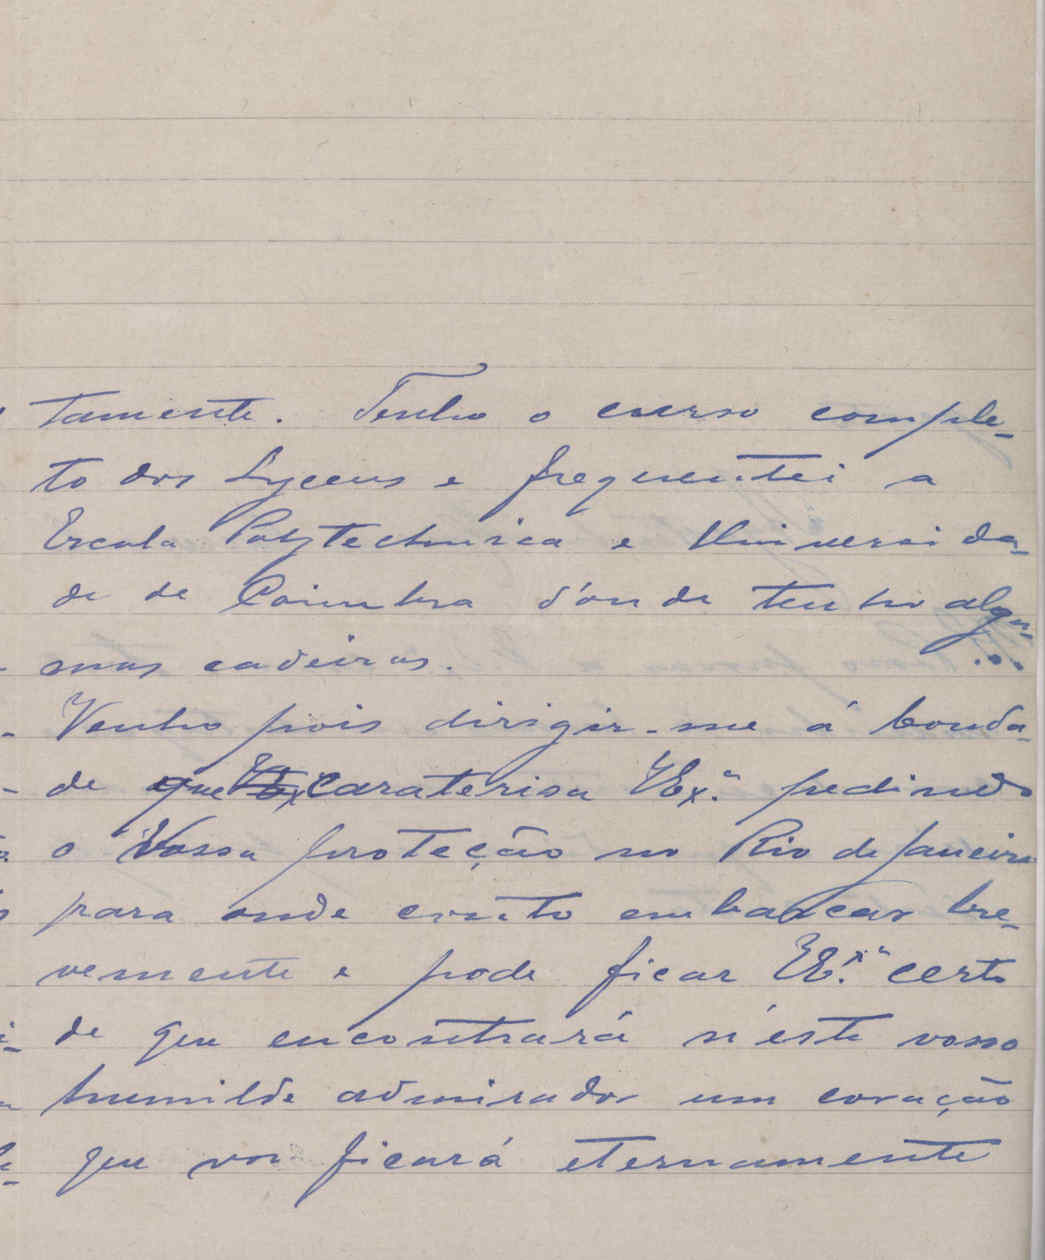 tamente. Tenho o curso comple-
to dos Lyceus e frequentei a
Escola Polytechnica e Universida-
de de Coimbra d'onde tenho algu-
mas cadeiras.
Venho pois dirigir-me á bonda-
de que caraterisa VEx.ª pedindo
a Vossa proteção no Rio de Janeiro
para onde conto embarcar bre-
vemente e pode ficar VEx.ª certo
de que encontrará n'este vosso
humilde admirador um coração
que vos ficará eternamente